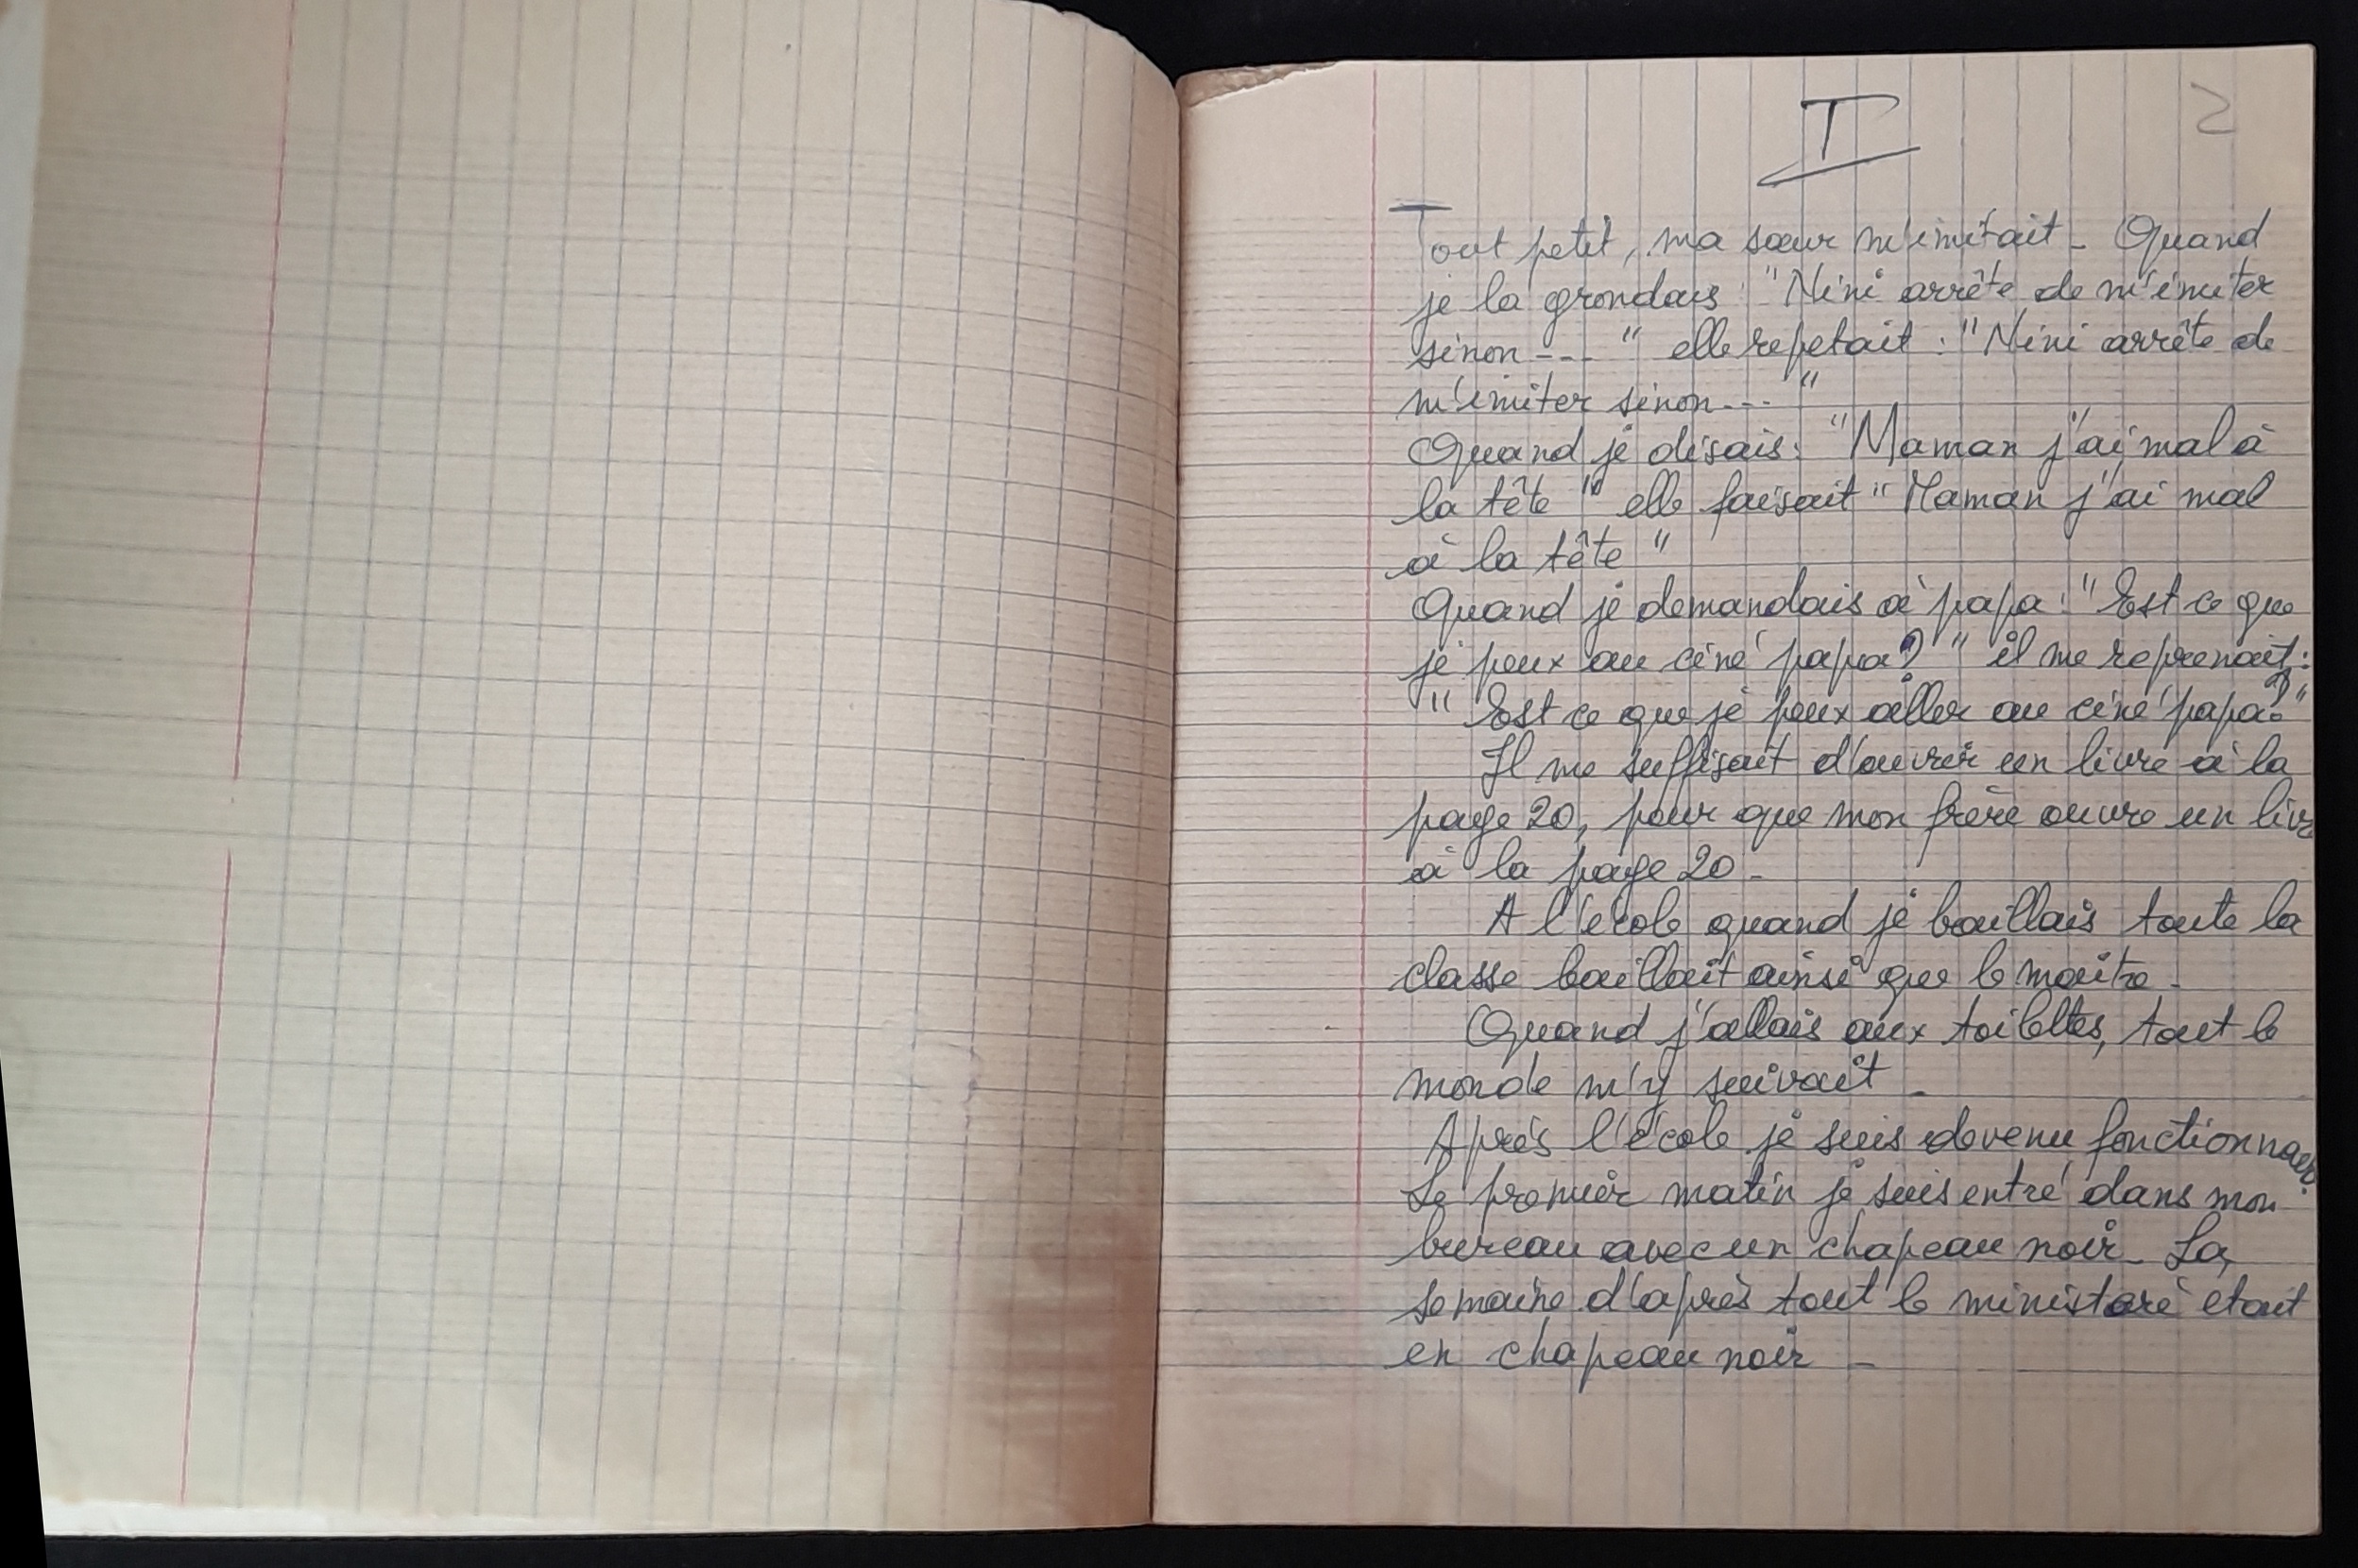 I
2
Tout petit, ma sœur m'imitait - Quand
je la grondais : "Nini arrête de m'imiter
sinon --- " elle repetait : "Nini arrête de
m'imiter sinon --- "
Quand je disais : "Maman j'ai mal à
la tête " elle faisait " Maman j'ai mal
à la tête "
Quand je demandais à papa : "Est ce que
je peux au ciné papa ? " il me reprenait :
" Est ce que je peux aller au ciné papa ? "
Il me suffisait d'ouvrir un livre à la
page 20, pour que mon frère ouvre un livre
à la page 20 -
A l'école quand je baillais toute la
classe baillait ainsi que le maître -
Quand j'allais aux toilettes, tout le
monde m'y suivait -
Après l'école je suis devenu fonctionnaire.
Le premier matin je suis entré dans mon
bureau avec un chapeau noir - La
semaine d'après tout le ministère etait
en chapeau noir -